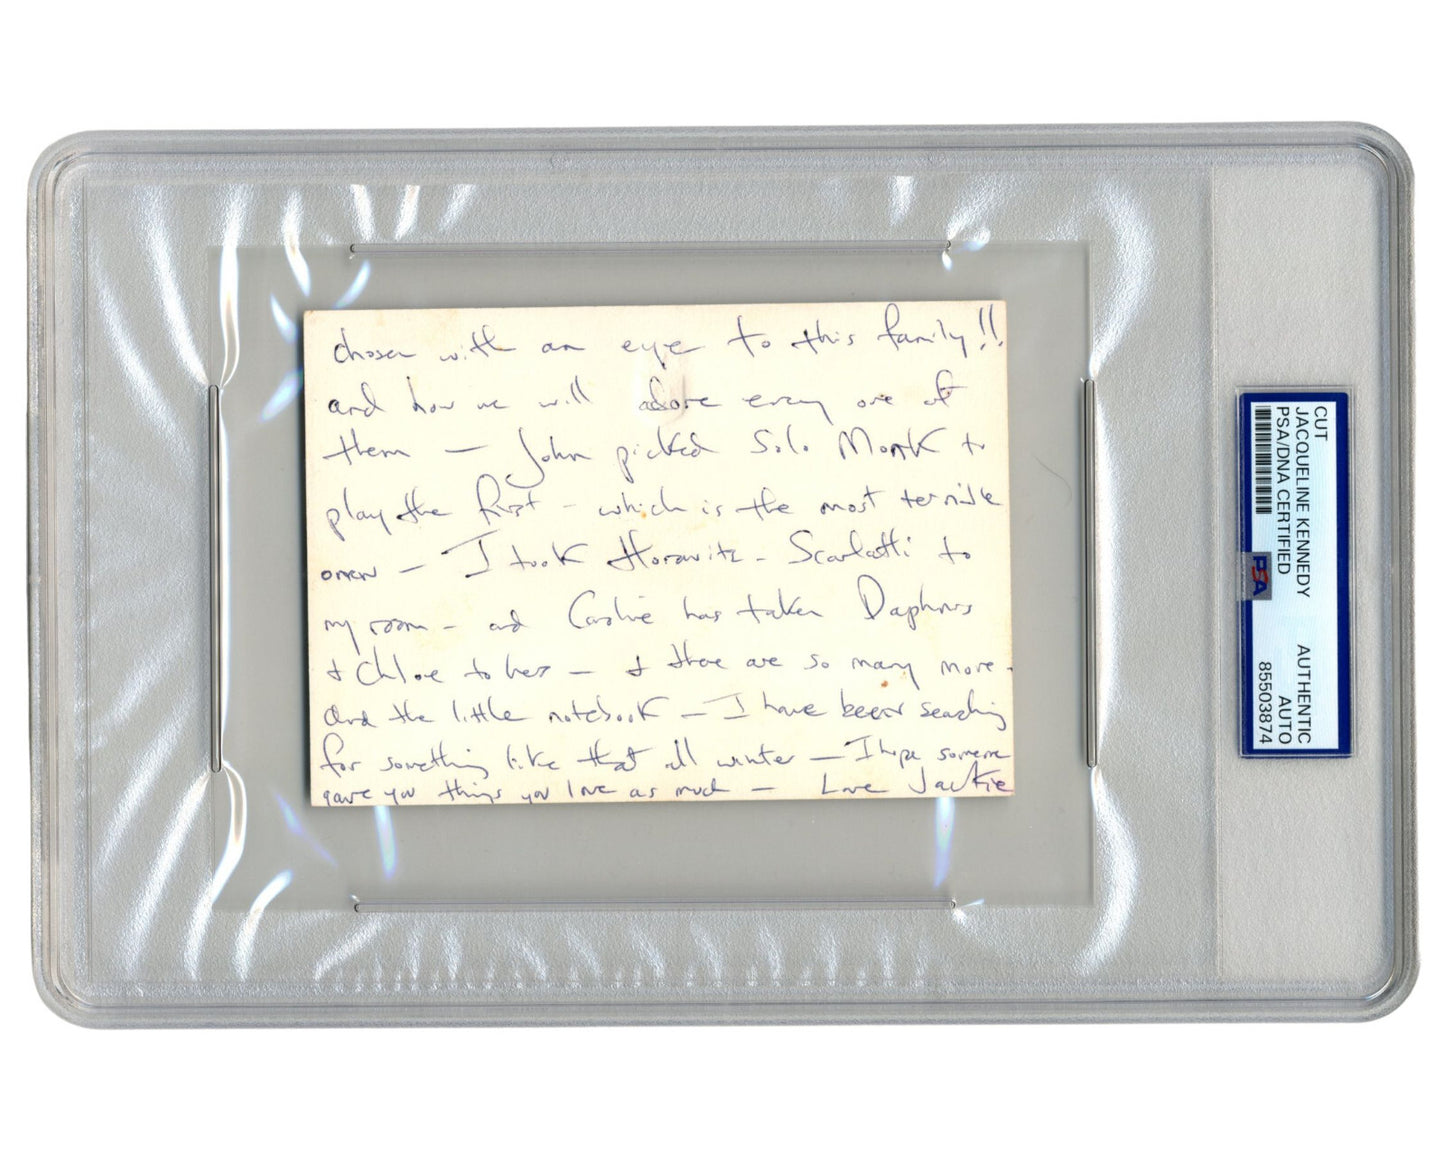 chosen with an eye to this family!!
and how we will adore every one of
them — John picked Solo Monk to
play the first — which is the most terrible
omen — I took Horowitz - Scarlatti to
my room - and Caroline has taken Daphnis
& Chloe to hers — & there are so many more.
And the little notebook — I have been searching
for something like that all winter — I hope someone
gave you things you love as much — Love Jackie
CUT
JACQUELINE KENNEDY
PSA/DNA CERTIFIED
AUTHENTIC
AUTO
85503874
PSA